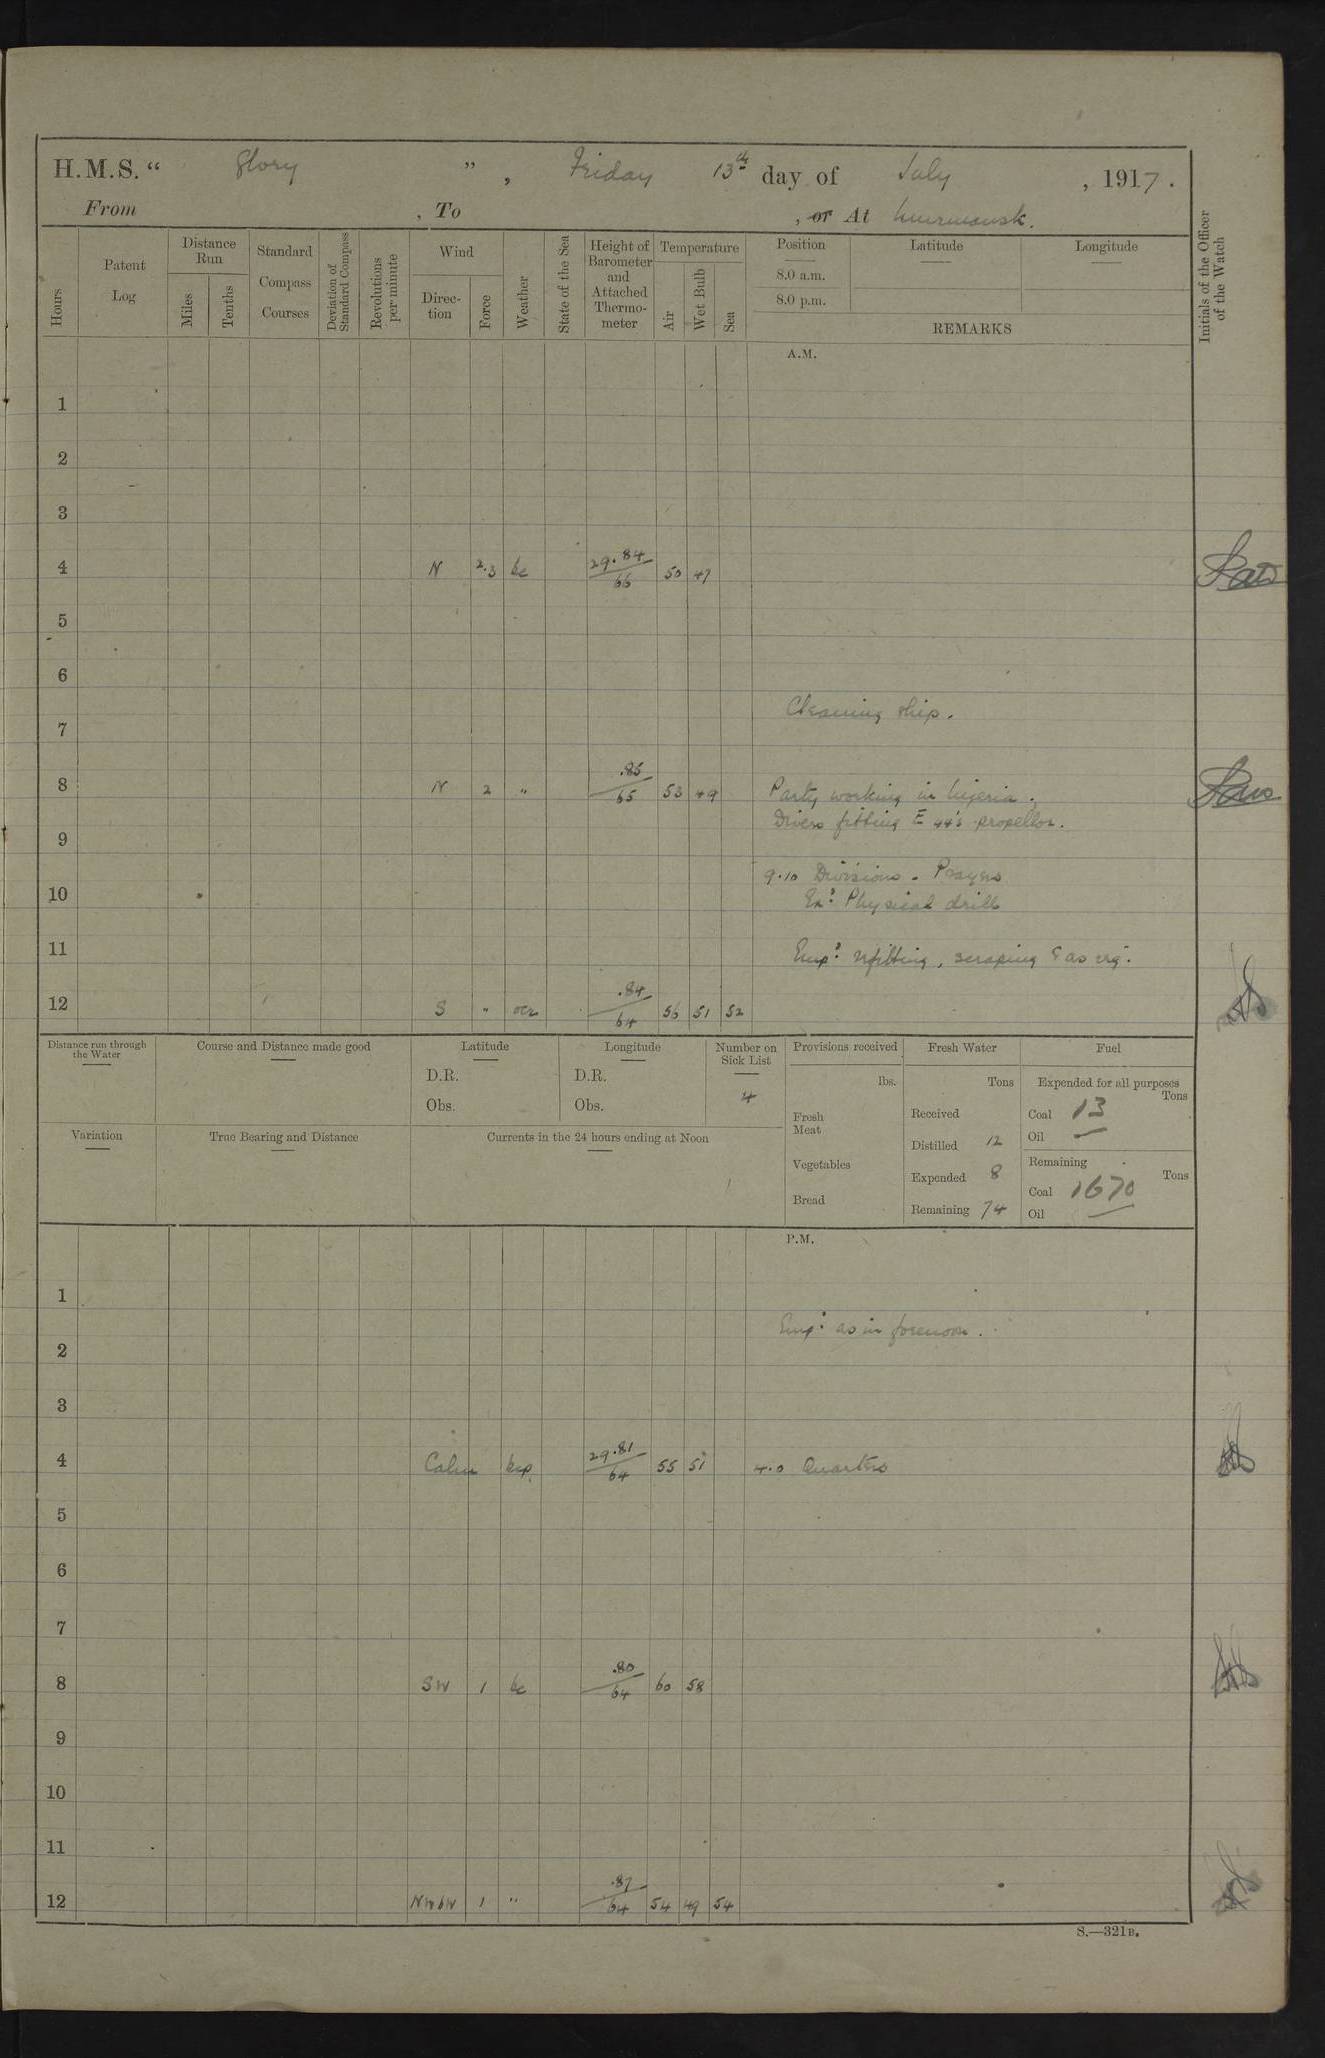 H.M.S. "Glory", Friday 13th day of July, 1917.
From , To , or At Murmansk.
Hours
Patent Log
Distance Run
Miles
Tenths
Standard Compass Courses
Deviation of Standard Compass
Revolutions per minute
Wind
Direction
Force
Weather
State of the Sea
Height of Barometer and Attached Thermometer
Temperature
Air
Wet Bulb
Sea
Position
8.0 a.m.
8.0 p.m.
Latitude
Longitude
REMARKS
Initials of the Officer of the Watch
A.M.
1
2
3
4 N 2.3 bc 29.84/66 50 47
5
6
Cleaning ship.
7
8 N 2 " .85/65 53 49 Party working in Nigeria.
Divers fitting E 44's propellor.
9
9.10 Divisions. Prayers
10 Ex: Physical drill
11 Emp: refitting, scraping & as req:
12 S " ocr .84/64 56 51 52
Distance run through the Water
Course and Distance made good
Latitude
D.R.
Obs.
Longitude
D.R.
Obs.
Number on Sick List
4
Provisions received
lbs.
Fresh Meat
Vegetables
Bread
Fresh Water
Tons
Received
Distilled 12
Expended 8
Remaining 74
Fuel
Expended for all purposes
Tons
Coal 13
Oil —
Remaining
Tons
Coal 1670
Oil —
Variation
True Bearing and Distance
Currents in the 24 hours ending at Noon
P.M.
1
Emp: as in forenoon.
2
3
4 Calm bcp 29.81/64 55 51 4.0 Quarters
5
6
7
8 SW 1 bc .80/64 60 58
9
10
11
12 NWbW 1 " .87/64 54 49 54
S.—321B.